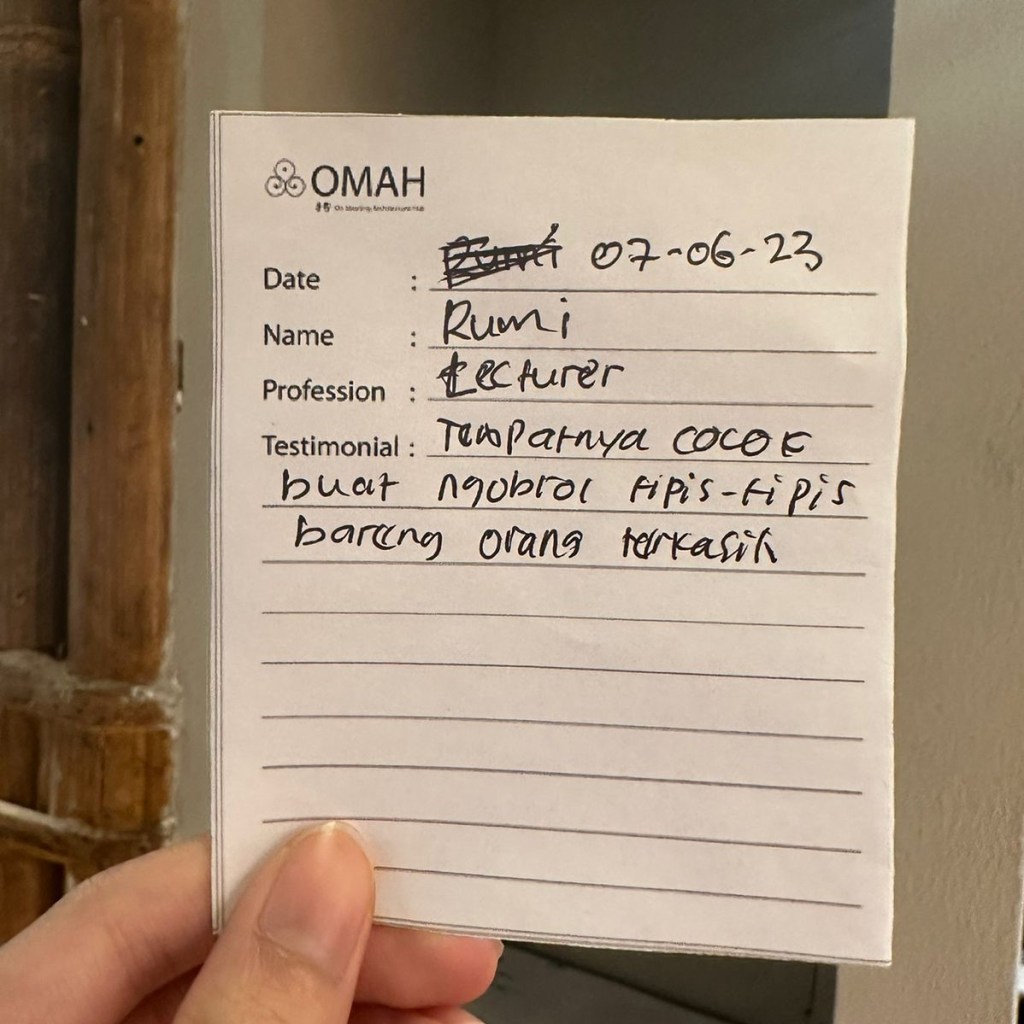 OMAH
Date : 07-06-23
Name : Rumi
Profession : Lecturer
Testimonial : Tempatnya cocok
buat ngobrol tipis-tipis
bareng orang terkasih